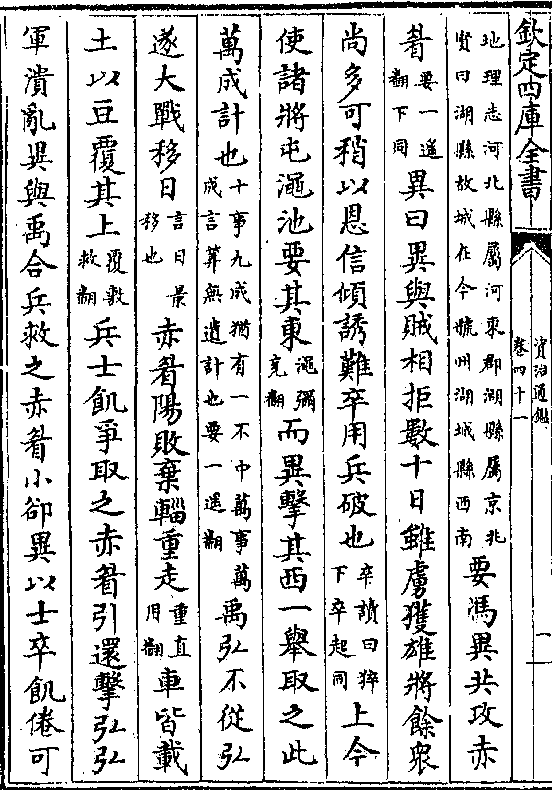 欽定四庫全書
資治通鑑
卷四十一
一
地理志河北縣屬河東郡湖縣屬京兆
賢曰湖縣故城在今虢州湖城縣西南
要馮異共攻赤
眉
要一遥
翻下同
異曰異與賊相拒數十日雖虜獲雄將餘衆
尚多可稍以恩信傾誘難卒用兵破也
卒讀曰猝
下卒起同
上今
使諸將屯澠池要其東
澠彌
兖翻
而異擊其西一舉取之此
萬成計也
十事九成猶有一不中萬事萬
成言算無遺計也要一遥翻
禹弘不從弘
遂大戰移日
言日景
移也
赤眉陽敗棄輜重走
重直
用翻
車皆載
土以豆覆其上
覆敷
救翻
兵士飢爭取之赤眉引還擊弘弘
軍潰亂異與禹合兵救之赤眉小卻異以士卒飢倦可